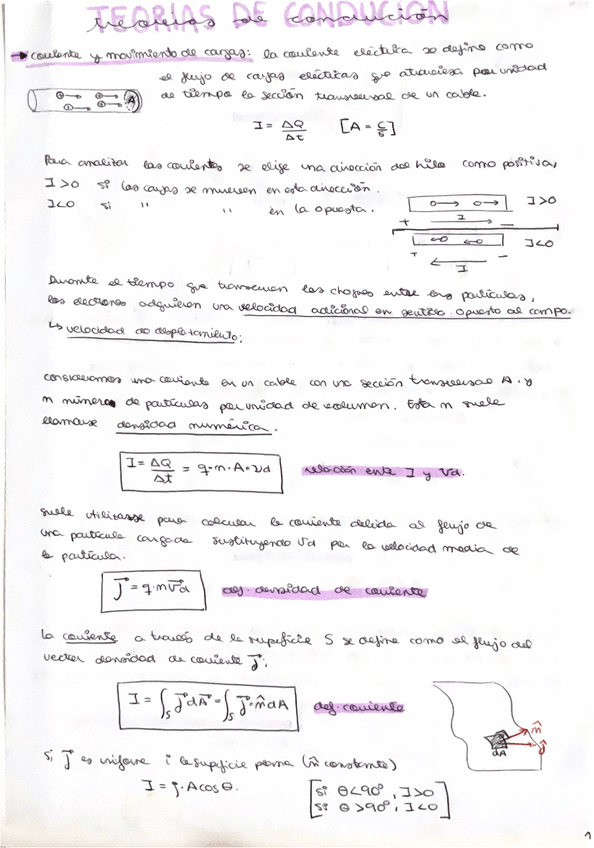 TEORIAS DE CONDUCIÓN
teorias de conducción
→ corriente y movimiento de cargas: la corriente eléctrica se define como
el flujo de cargas eléctricas que atraviesa por unidad
de tiempo la sección transversal de un cable.
I = ΔQ/Δt [A = C/s]
Para analizar las corrientes se elige una dirección del hilo como positiva,
I>0 si las cargas se mueven en esta dirección.
I<0 si " " en la opuesta.
I>0
+ I −
I<0
+ −
I
Durante el tiempo que transcurren los choques entre las partículas,
los electrones adquieren una velocidad adicional en sentido opuesto al campo.
↳ velocidad de desplazamiento:
consideramos una corriente en un cable con una sección transversal A. y
n número de partículas por unidad de volumen. Esta n suele
llamarse densidad numérica.
I = ΔQ/Δt = q·n·A·vd relación entre I y Vd.
suele utilizarse para calcular la corriente debida al flujo de
una partícula cargada sustituyendo Vd por la velocidad media de
la partícula.
J⃗ = q·n v⃗d def. densidad de corriente
la corriente a través de la superficie S se define como el flujo del
vector densidad de corriente J⃗:
I = ∫s J⃗ dA⃗ = ∫s J⃗·n̂ dA def. corriente
n̂
J⃗
dA
si J⃗ es uniforme i la superficie plana (n̂ constante)
I = j·A cos θ. [si θ<90º, I>0
si θ>90º, I<0]
1